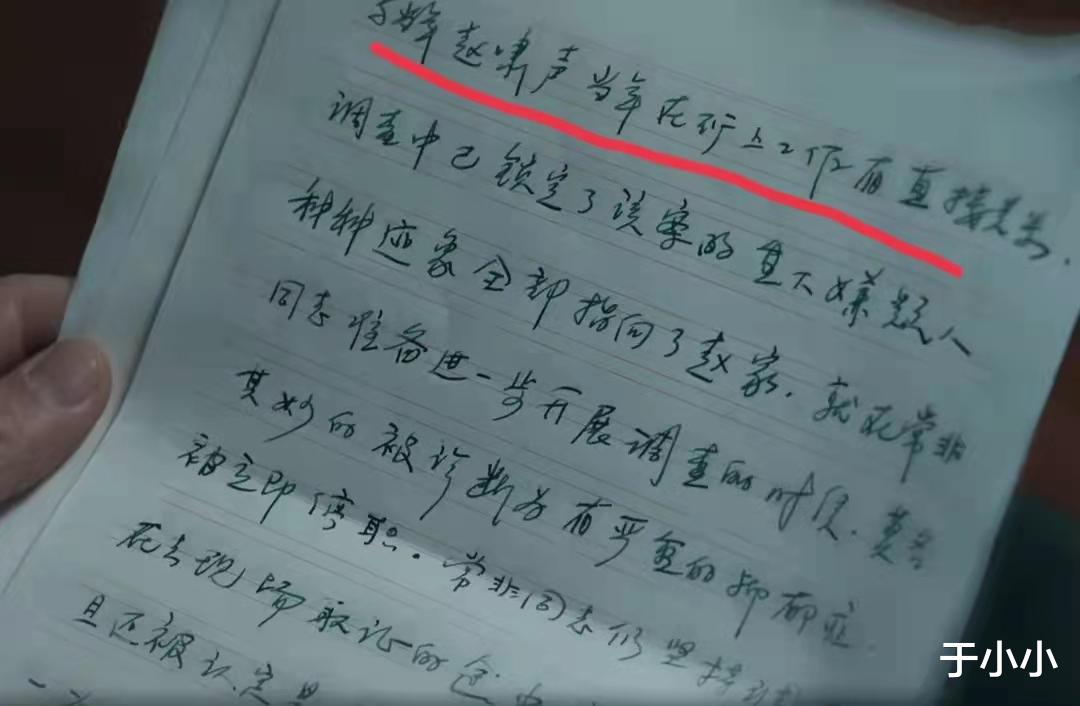 赵啸声当年在矿上工作有直接关系.
调查中已锁定了该案的重大嫌疑人
种种迹象全部指向了赵家.就在常非
同志准备进一步开展调查的时候.莫名
其妙的被诊断为有严重的抑郁症
被立即停职。常非同志仍坚持调
在去现场取证的途中
且还被认定是
于小小